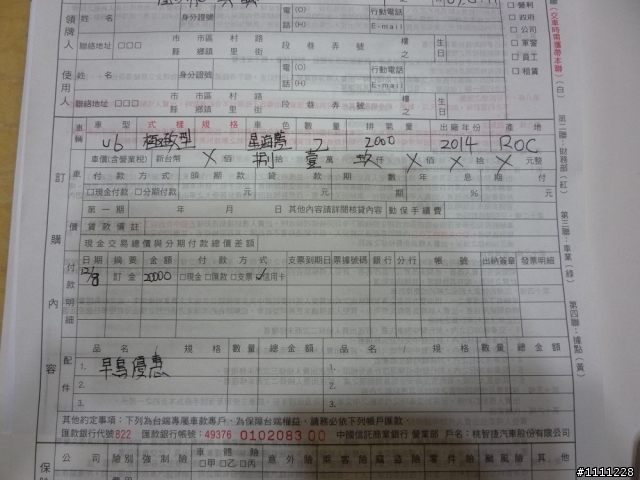 領牌人
姓名 身分證號 電話 (O) (H) 行動電話 E-mail
聯絡地址 □□□ 市縣 市區鄉鎮 村里 路街 段 巷 弄 號 樓之 生日
使用人
姓名 身分證號 電話 (O) (H) 行動電話 E-mail
聯絡地址 □□□ 市縣 市區鄉鎮 村里 路街 段 巷 弄 號 樓之 生日
□營利
□政府
□公司
□軍警
□員工
□租賃
訂購內容
車型 式樣規格 車色 數量 排氣量 出廠年份 產地
U6 極致型 2000 2014 ROC
車價(含營業稅) 新台幣 X 佰 捌 拾 壹 萬 玖 仟 X 佰 X 拾 X 元整
付款方式 頭期款 貸款額 期數 年息 期付
□現金付款 □分期付款 元 元 期 % 元
第一期 年 月 日 其他內容請詳閱核貸內容 動保手續費
貸款備註
現金交易總價與分期付款總價差額
付款明細
日期 摘要 金額 付款方式 支票到期日 票據號碼 銀行 分行 帳號 出納簽章 發票明細
12/8 訂金 20000 □現金 □匯款 □支票 ✓信用卡
配件
品名/規格 數量 總金額 品名/規格 數量 總金額
1. 早鳥優惠 1.
2. 2.
3. 3.
其他約定事項：下列為台端專屬車款專戶，為保障台端權益，請務必依下列帳戶匯款。
匯款銀行代號822 匯款銀行帳號：49376 0102083 00 中國信託商業銀行 營業部 戶名：桃智捷汽車股份有限公司
公司 險別 強制險 車體險 □甲□乙□丙 意外險 乘客險 竊盜險 零件險 颱風險 其他
第二聯：財務部(紅)
第三聯：車業(綠)
第四聯：據點(黃)
#1111228